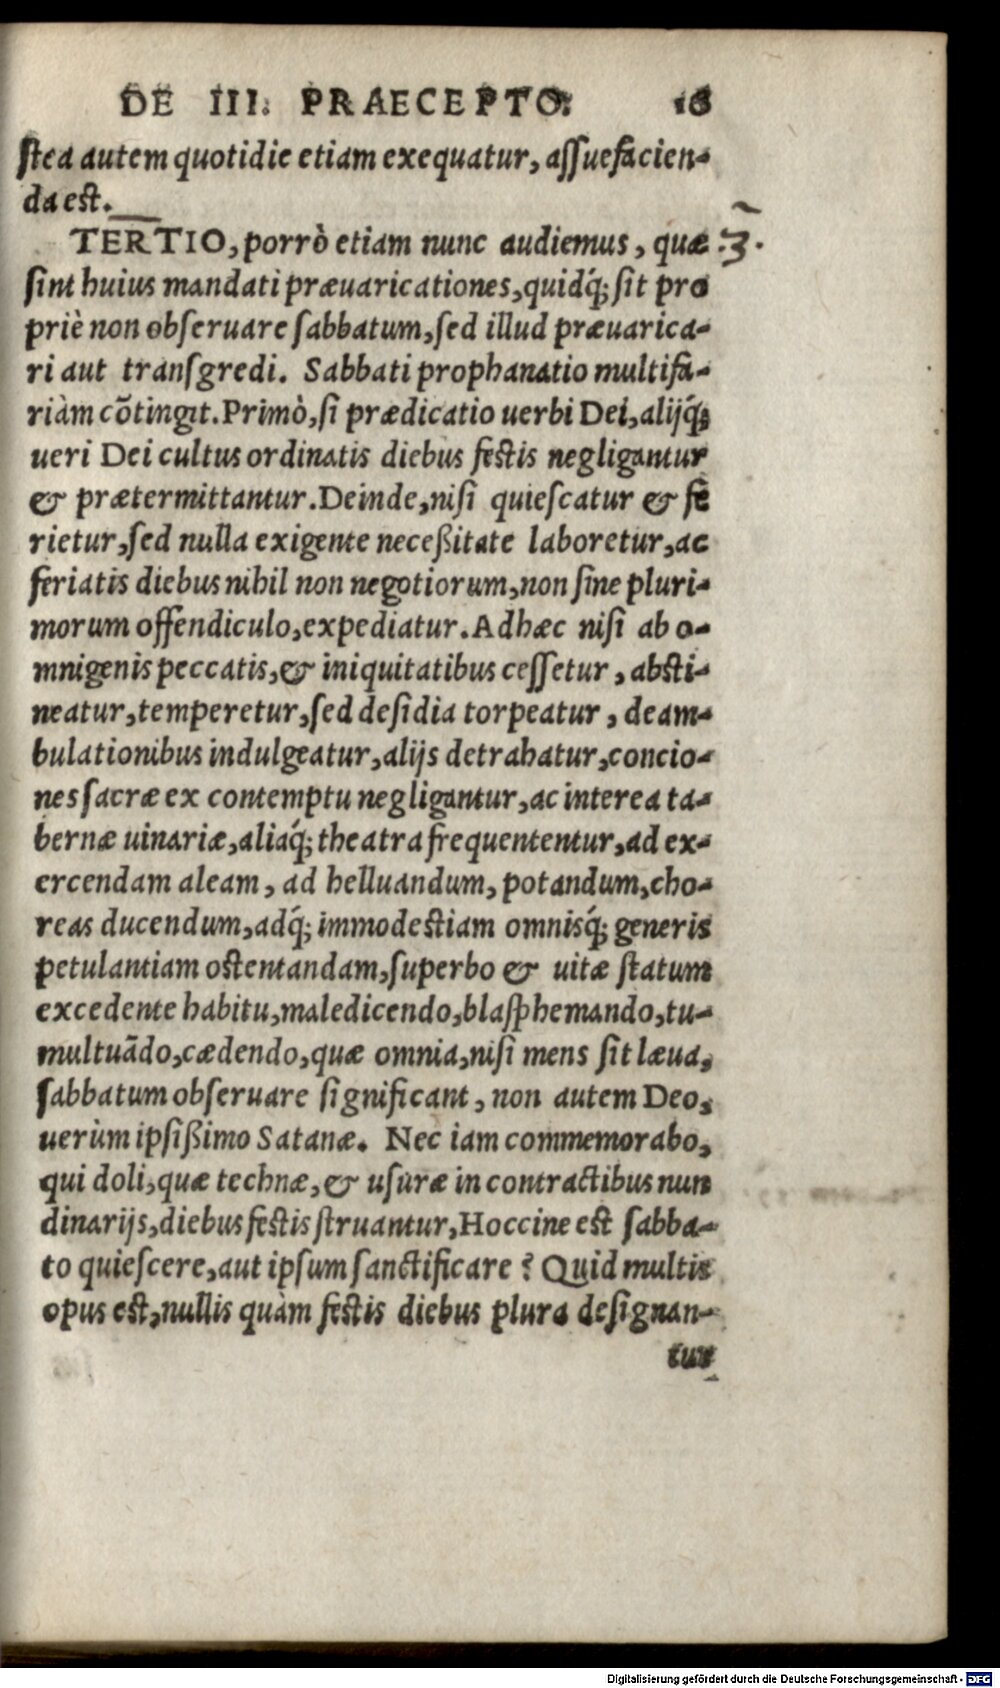 DE III. PRAECEPTO. 16
ſtea autem quotidie etiam exequatur, aſſuefacien-
da eſt.
TERTIO, porrò etiam nunc audiemus, quæ .3.
ſint huius mandati præuaricationes, quidq́; ſit pro
priè non obſeruare ſabbatum, ſed illud præuarica-
ri aut tranſgredi. Sabbati prophanatio multifa-
riàm cõtingit. Primò, ſi prædicatio uerbi Dei, alijq́;
ueri Dei cultus ordinatis diebus feſtis negligantur
& prætermittantur. Deinde, niſi quieſcatur & fe
rietur, ſed nulla exigente neceßitate laboretur, ac
feriatis diebus nihil non negotiorum, non ſine pluri-
morum offendiculo, expediatur. Adhæc niſi ab o-
mnigenis peccatis, & iniquitatibus ceſſetur, abſti-
neatur, temperetur, ſed deſidia torpeatur, deam-
bulationibus indulgeatur, alijs detrahatur, concio-
nes ſacræ ex contemptu negligantur, ac interea ta-
bernæ uinariæ, aliaq́; theatra frequententur, ad ex-
ercendam aleam, ad helluandum, potandum, cho-
reas ducendum, adq́; immodeſtiam omnisq́; generis
petulantiam oſtentandam, ſuperbo & uitæ ſtatum
excedente habitu, maledicendo, blaſphemando, tu-
multuãdo, cædendo, quæ omnia, niſi mens ſit læua,
ſabbatum obſeruare ſignificant, non autem Deo,
uerùm ipſißimo Satanæ. Nec iam commemorabo,
qui doli, quæ technæ, & uſuræ in contractibus nun
dinarijs, diebus feſtis ſtruantur, Hoccine eſt ſabba-
to quieſcere, aut ipſum ſanctificare? Quid multis
opus eſt, nullis quàm feſtis diebus plura deſignan-
tur
Digitalisierung gefördert durch die Deutsche Forschungsgemeinschaft - DFG